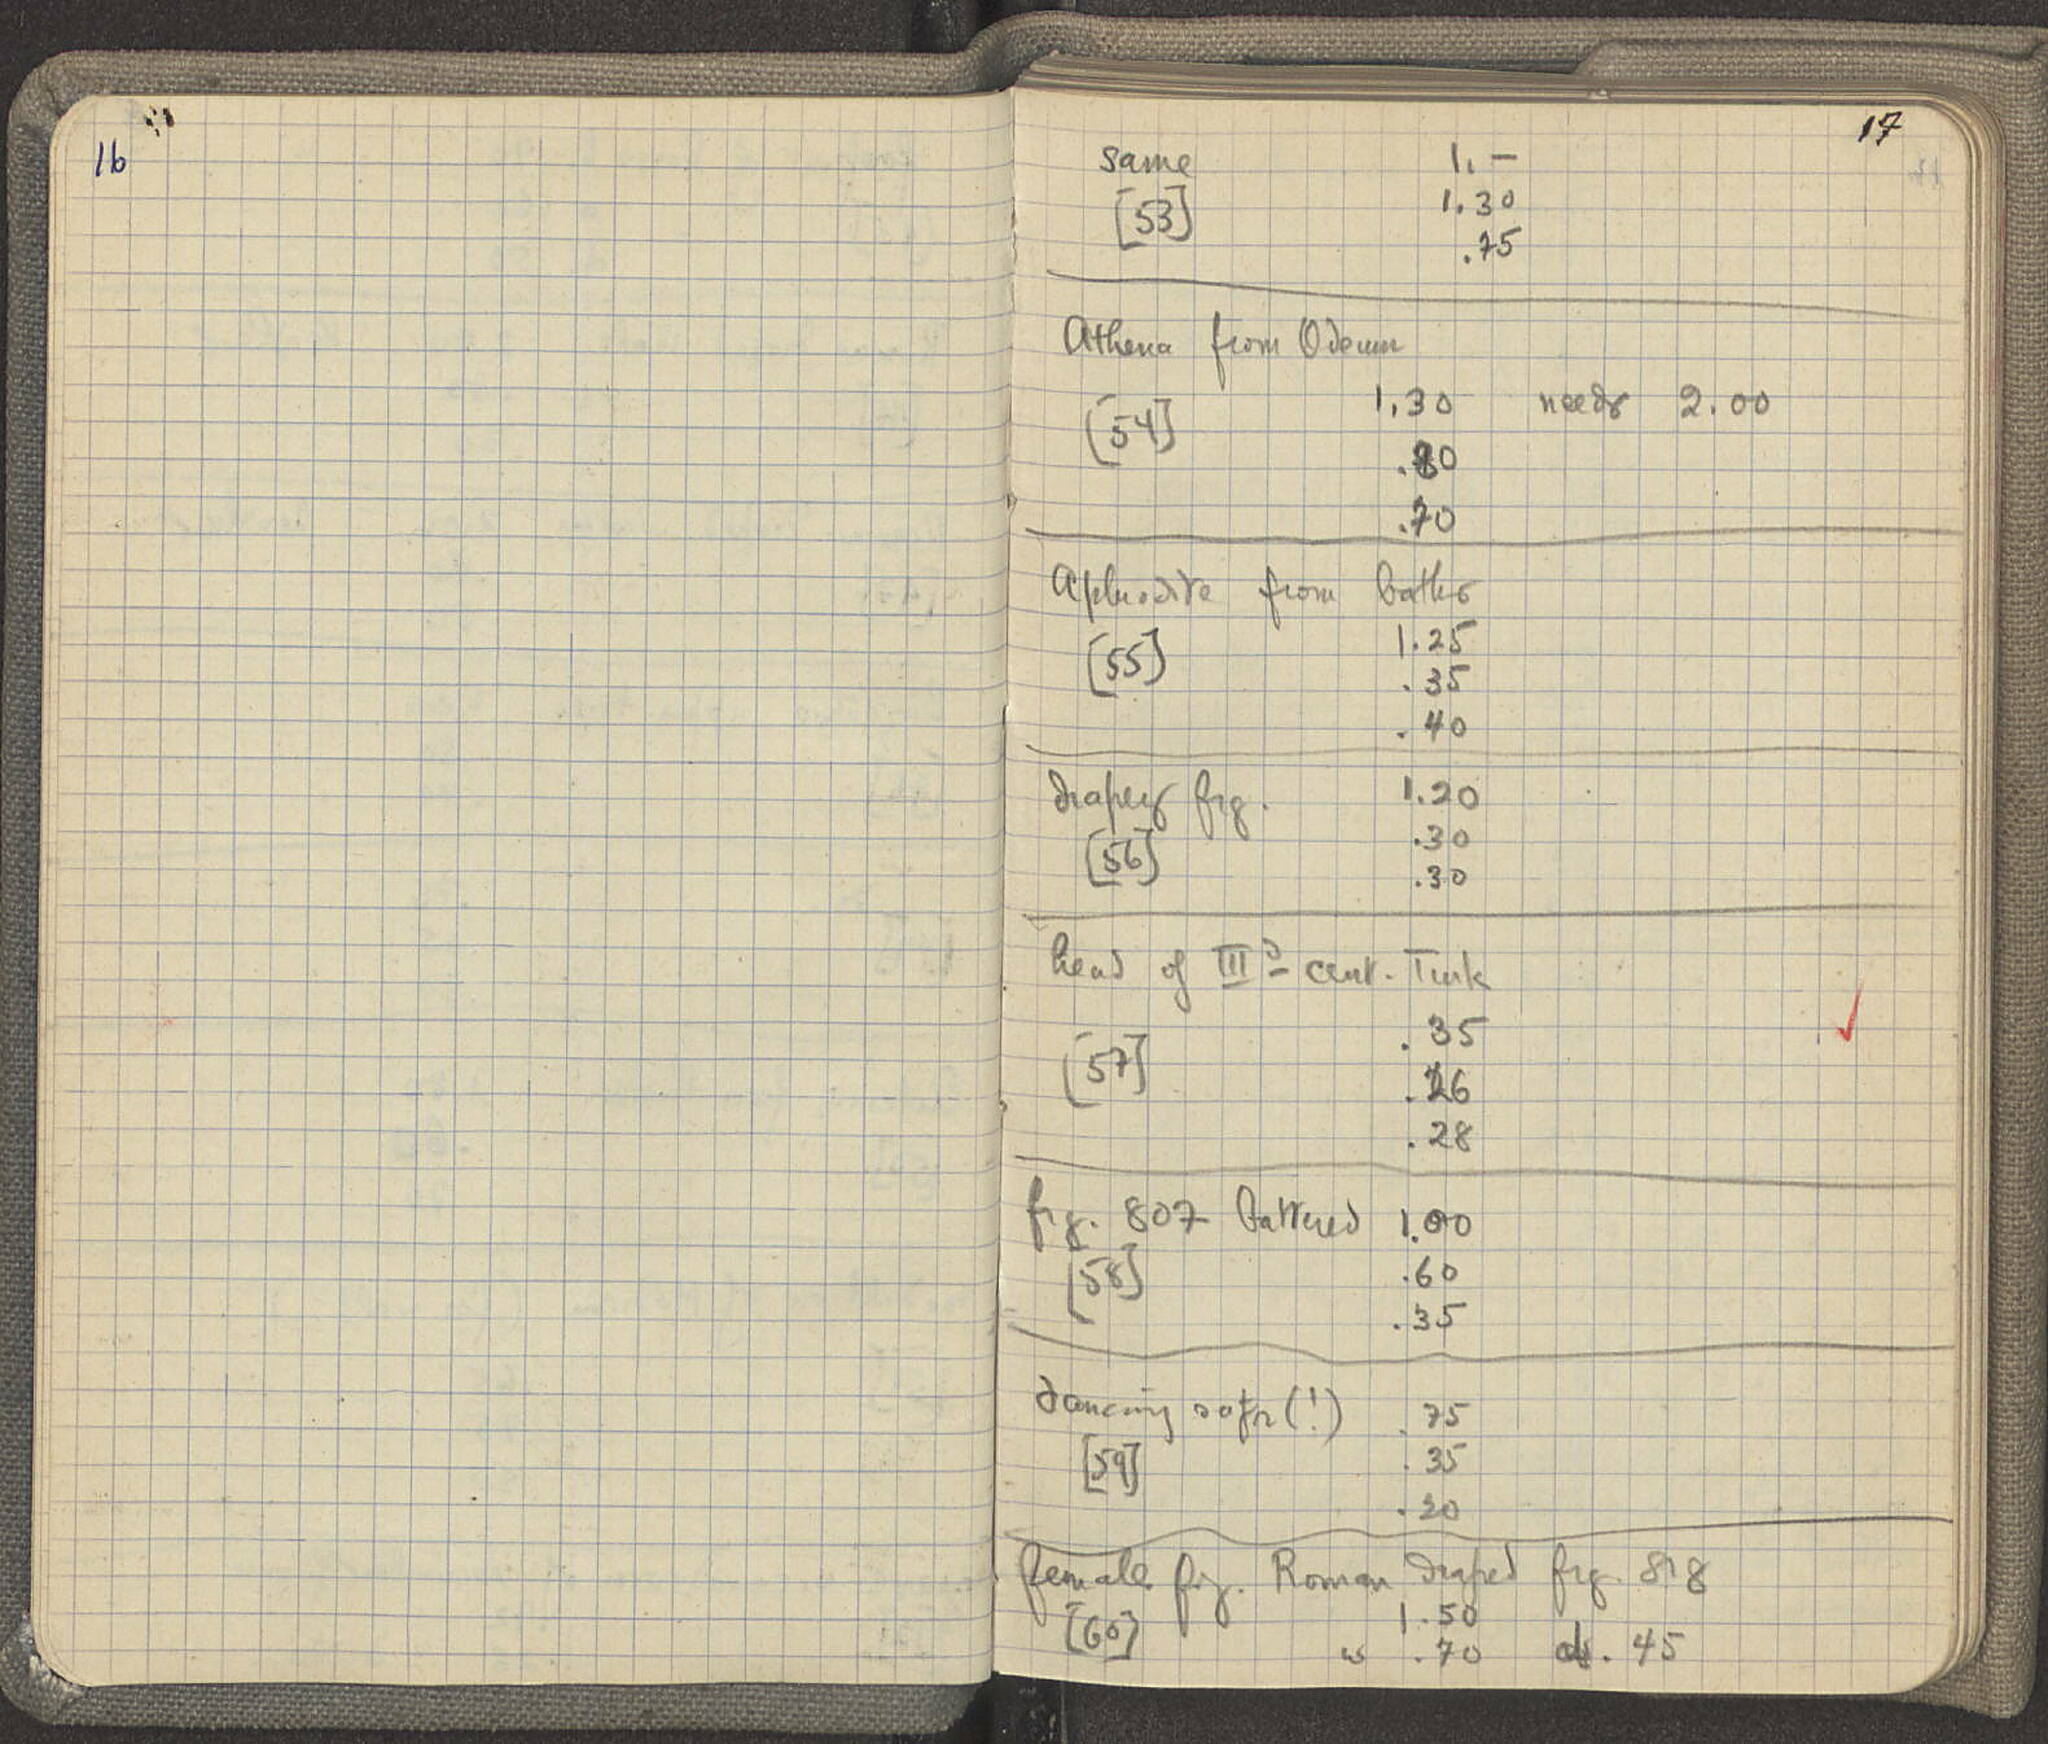 16
17
same 1. —
[53] 1.30
.75
Athena from Odeum
[54] 1.30 needs 2.00
.80
.70
Aphrodite from baths
[55] 1.25
.35
.40
drapery frg. 1.20
[56] .30
.30
head of IIId cent. Turk
[57] .35
.26
.28
frg. 807 battered 1.00
[58] .60
.35
dancing satyr (!) .75
[59] .35
.20
female fig. Roman draped frg. 818
[60] 1.50
w .70 d. .45